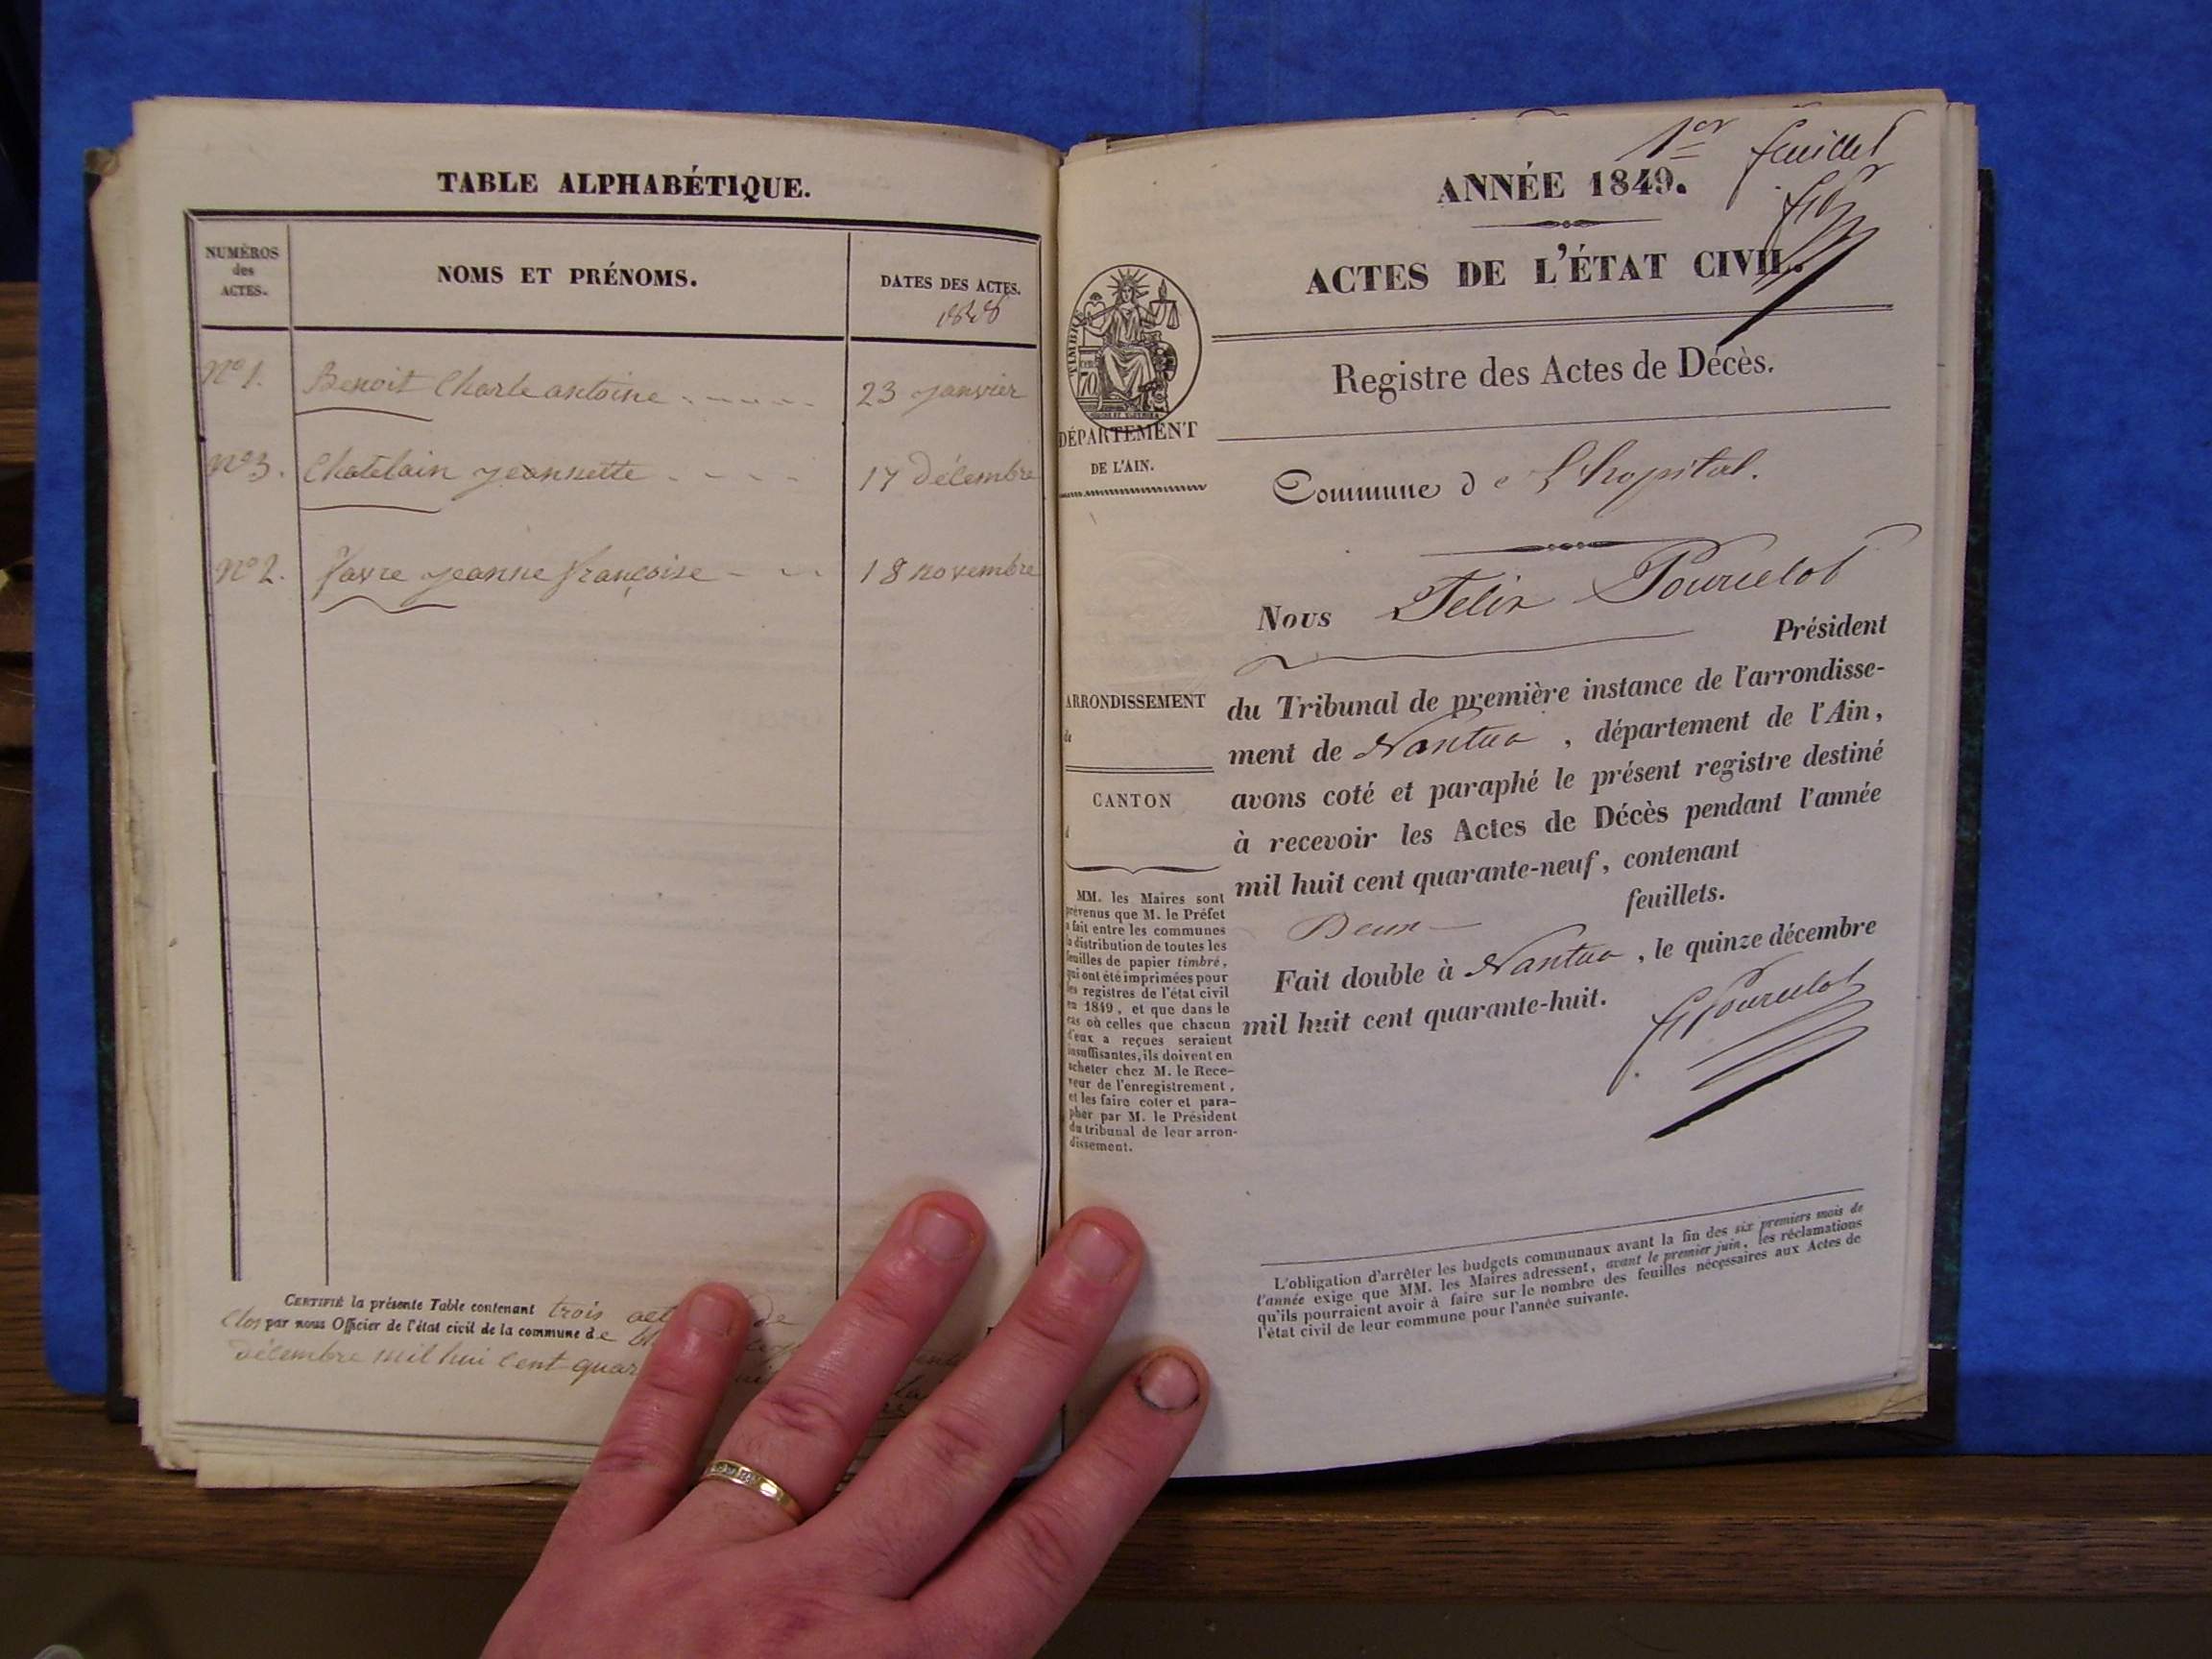 TABLE ALPHABÉTIQUE.
NUMÉROS
des
ACTES.
NOMS ET PRÉNOMS.
DATES DES ACTES.
1848
N° 1. Benoit Charle antoine 23 janvier
N° 3. Chatelain jeannette 17 décembre
N° 2. favre jeanne françoise 18 novembre
CERTIFIÉ la présente Table contenant trois de
Clos par nous Officier de l'état civil de la commune de
décembre mil hui cent
1er feuillet
ANNÉE 1849.
ACTES DE L'ÉTAT CIVIL.
TIMBRE
70
Registre des Actes de Décès.
DÉPARTEMENT
DE L'AIN.
Commune de L'hopital.
Nous Félix Pourcelot
Président
ARRONDISSEMENT
de
CANTON
d
du Tribunal de première instance de l'arrondisse-
ment de Nantua, département de l'Ain,
avons coté et paraphé le présent registre destiné
à recevoir les Actes de Décès pendant l'année
mil huit cent quarante-neuf, contenant
Deux feuillets.
Fait double à Nantua, le quinze décembre
mil huit cent quarante-huit.
F Pourcelot
MM. les Maires sont
prévenus que M. le Préfet
a fait entre les communes
la distribution de toutes les
feuilles de papier timbré,
qui ont été imprimées pour
les registres de l'état civil
en 1849, et que dans le
cas où celles que chacun
d'eux a reçues seraient
insuffisantes, ils doivent en
acheter chez M. le Rece-
veur de l'enregistrement,
et les faire coter et para-
pher par M. le Président
du tribunal de leur arron-
dissement.
L'obligation d'arrêter les budgets communaux avant la fin des six premiers mois de
l'année exige que MM. les Maires adressent, avant le premier juin, les réclamations
qu'ils pourraient avoir à faire sur le nombre des feuilles nécessaires aux Actes de
l'état civil de leur commune pour l'année suivante.